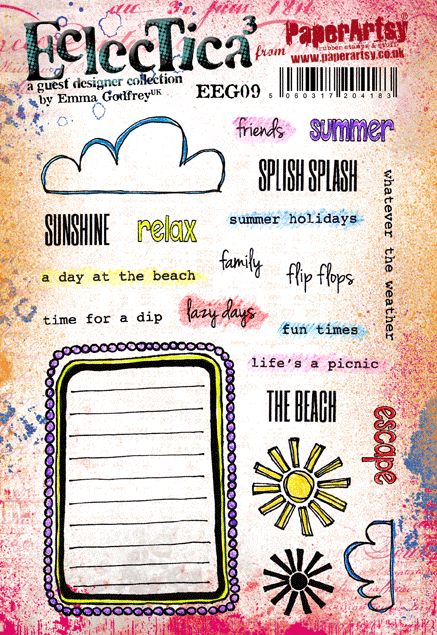 au 30 juin 1911
EclecTica³
from
PaperArtsy
rubber stamps & stuff
www.paperartsy.co.uk
a guest designer collection
by Emma Godfrey UK
EEG09
5 060317 204183
friends
summer
SPLISH SPLASH
SUNSHINE
relax
summer holidays
whatever the weather
a day at the beach
family
flip flops
time for a dip
lazy days
fun times
life's a picnic
THE BEACH
escape